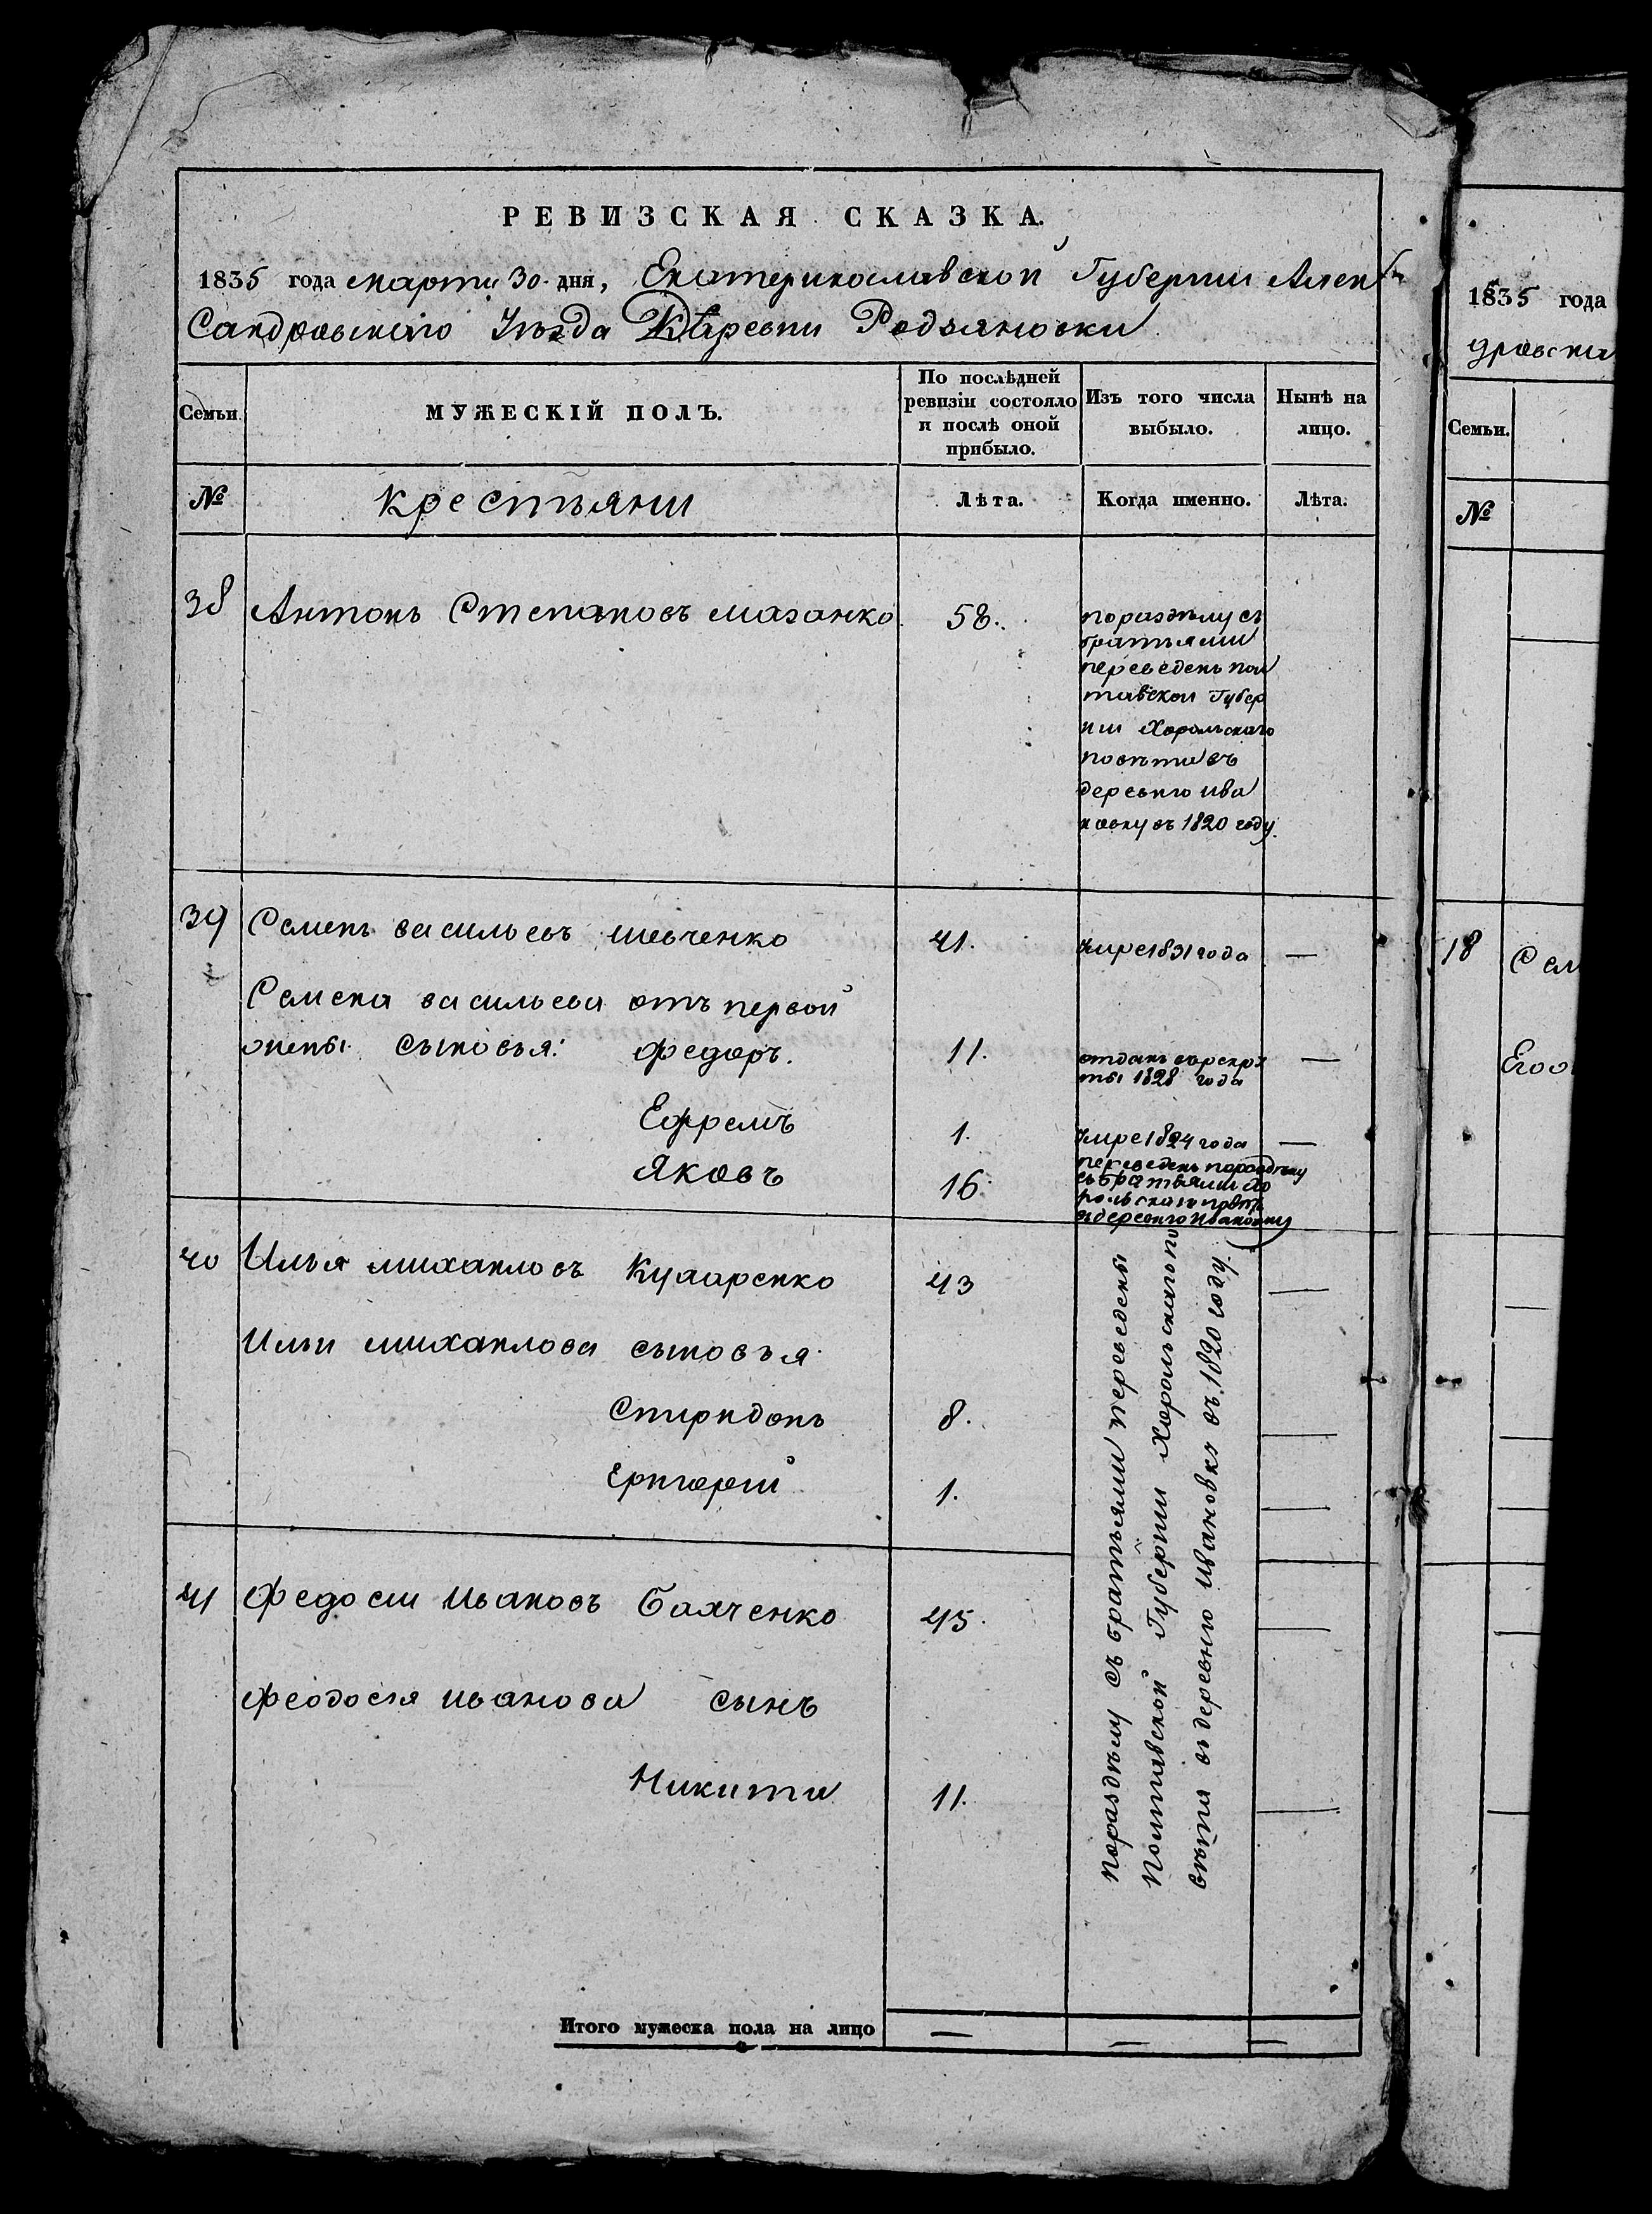 РЕВИЗСКАЯ СКАЗКА.
1835 года марта 30 дня, Екатеринославской Губернии Алек
Сандровскаго Уѣзда Деревни Родзяновки
Семьи.
МУЖЕСКІЙ ПОЛЪ.
По послѣдней ревизіи состояло и послѣ оной прибыло.
Изъ того числа выбыло.
Нынѣ на лицо.
№
крестьяни
Лѣта.
Когда именно.
Лѣта.
38 Антонъ Степановъ мазанко 58.
поразделу съ
братьями
переведенъ пол
тавской Губер
нии Хорольскаго
повѣта въ
деревню ива
новку въ 1820 году.
39 Семенъ васильевъ шевченко 41. умре 1831 года —
Семена васильева отъ первой
жены сыновья: Федоръ. 11. отданъ врекру
ты 1828 года —
Ефремъ 1. умре 1824 года —
Яковъ 16.
переведенъ поразделу
съ братьями хо
рольскаго повѣта
въ деревню ивановку
40 Илья михайловъ 43 —
Ильи михайлова сыновья
Спиридонъ 8. —
Григорий 1. —
41 Федосий ивановъ 45. —
Феодосія иванова сынъ
Никита 11. —
поразделу съ братьями переведены
Полтавской Губернии Хорольскаго по
вѣта въ деревню ивановку въ 1820 году.
Итого мужеска пола на лицо — — —
1835 года
Семьи.
№
18 Сем